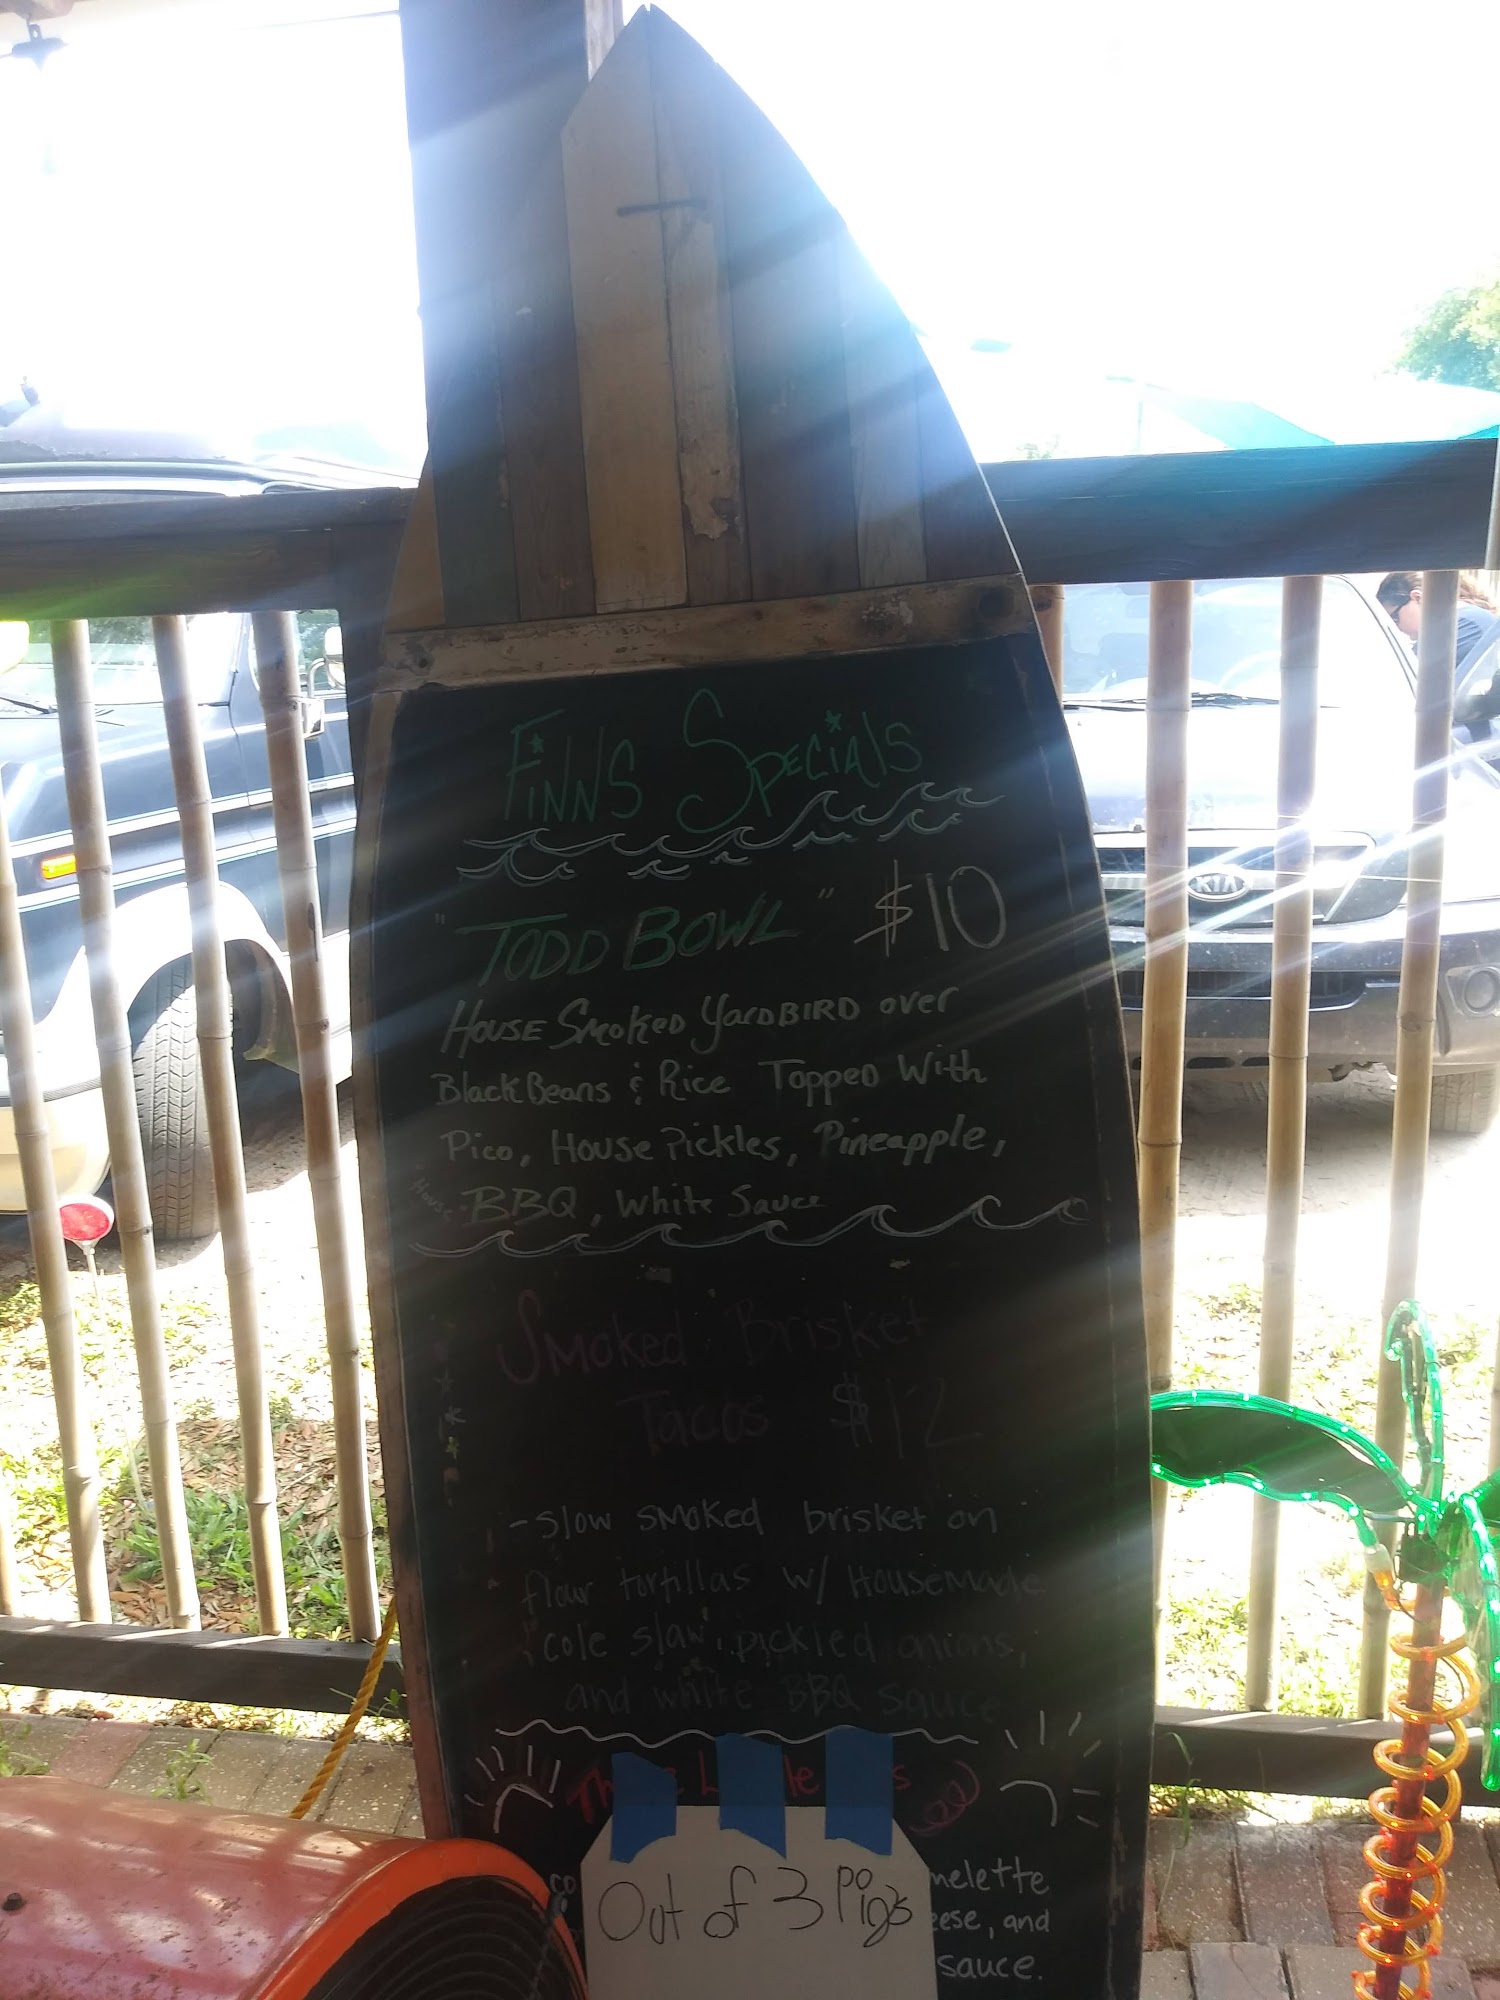 FINNS SPECIALS
"TODD BOWL" $10
HOUSE SMOKED YARDBIRD over
Black Beans & Rice Topped With
Pico, House Pickles, Pineapple,
House BBQ, White Sauce
Smoked Brisket
Tacos $12
- slow smoked brisket on
flour tortillas w/ Housemade
cole slaw, pickled onions,
and white BBQ sauce
Out of 3 Pigs
melette
eese, and
sauce.
KIA